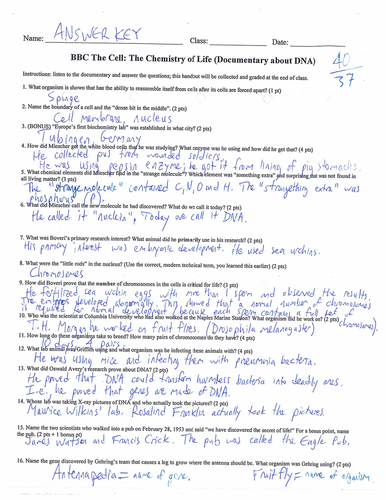 Name: ANSWER KEY Class: Date:
40
37
BBC The Cell: The Chemistry of Life (Documentary about DNA)
Instructions: listen to the documentary and answer the questions; this handout will be collected and graded at the end of class.
1. What organism is shown that has the ability to reassemble itself from cells after its cells are forced apart? (1 pt)
Sponge
2. Name the boundary of a cell and the "dense bit in the middle". (2 pts)
Cell membrane, nucleus
3. (BONUS) "Europe's first biochemistry lab" was established in what city? (2 pts)
Tubingen Germany
4. How did Miescher get the white blood cells that he was studying? What enzyme was he using and how did he get that? (4 pts)
He collected pus from wounded soldiers.
He was using pepsin enzyme; he got it from lining of pig stomachs.
5. What chemical elements did Miescher find in the "strange molecule"? Which element was "something extra" and surprising that was not found in
all living matter? (3 pts)
The "strange molecule" contained C, N, O and H. The "something extra" was
phosphorus (P).
6. What did Miescher call the new molecule he had discovered? What do we call it today? (2 pts)
He called it "nuclein", Today we call it DNA.
7. What was Boveri's primary research interest? What animal did he primarily use in his research? (2 pts)
His primary interest was embryonic development. He used sea urchins.
8. What were the "little rods" in the nucleus? (Use the correct, modern technical term, you learned this earlier) (2 pts)
Chromosomes
9. How did Boveri prove that the number of chromosomes in the cells is critical for life? (3 pts)
He fertilized sea urchin eggs with more than 1 sperm and observed the results.
The embryos developed abnormally. This showed that a normal number of chromosomes
is required for normal development (because each sperm contains a full set of
chromosomes)
10. Who was the scientist at Columbia University who had also worked at the Naples Marine Station? What organism did he work on? (2 pts)
T.H. Morgan, he worked on fruit flies. (Drosophila melanogaster)
11. How long do these organisms take to breed? How many pairs of chromosomes do they have? (4 pts)
10 days, 4 pairs.
12. What lab animal was Griffith using and what organism was he infecting these animals with? (4 pts)
He was using mice and infecting them with pneumonia bacteria.
13. What did Oswald Avery's research prove about DNA? (2 pts)
He proved that DNA could transform harmless bacteria into deadly ones.
I.e., he proved that genes are made of DNA.
14. Whose lab was taking X-ray pictures of DNA and who actually took the pictures? (2 pts)
Maurice Wilkins' lab. Rosalind Franklin actually took the pictures.
15. Name the two scientists who walked into a pub on February 28, 1953 and said "we have discovered the secret of life!" For a bonus point, name
the pub. (2 pts + 1 bonus pt)
James Watson and Francis Crick. The pub was called the Eagle Pub.
16. Name the gene discovered by Gehring's team that causes a leg to grow where the antenna should be. What organism was Gehring using? (2 pts)
Antennapedia = name of gene. Fruit fly = name of organism.